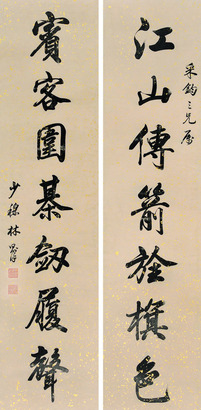 采鈞三兄屬
江山傳箭旌旗色
賓客圍棊劍履聲
少穆林則徐